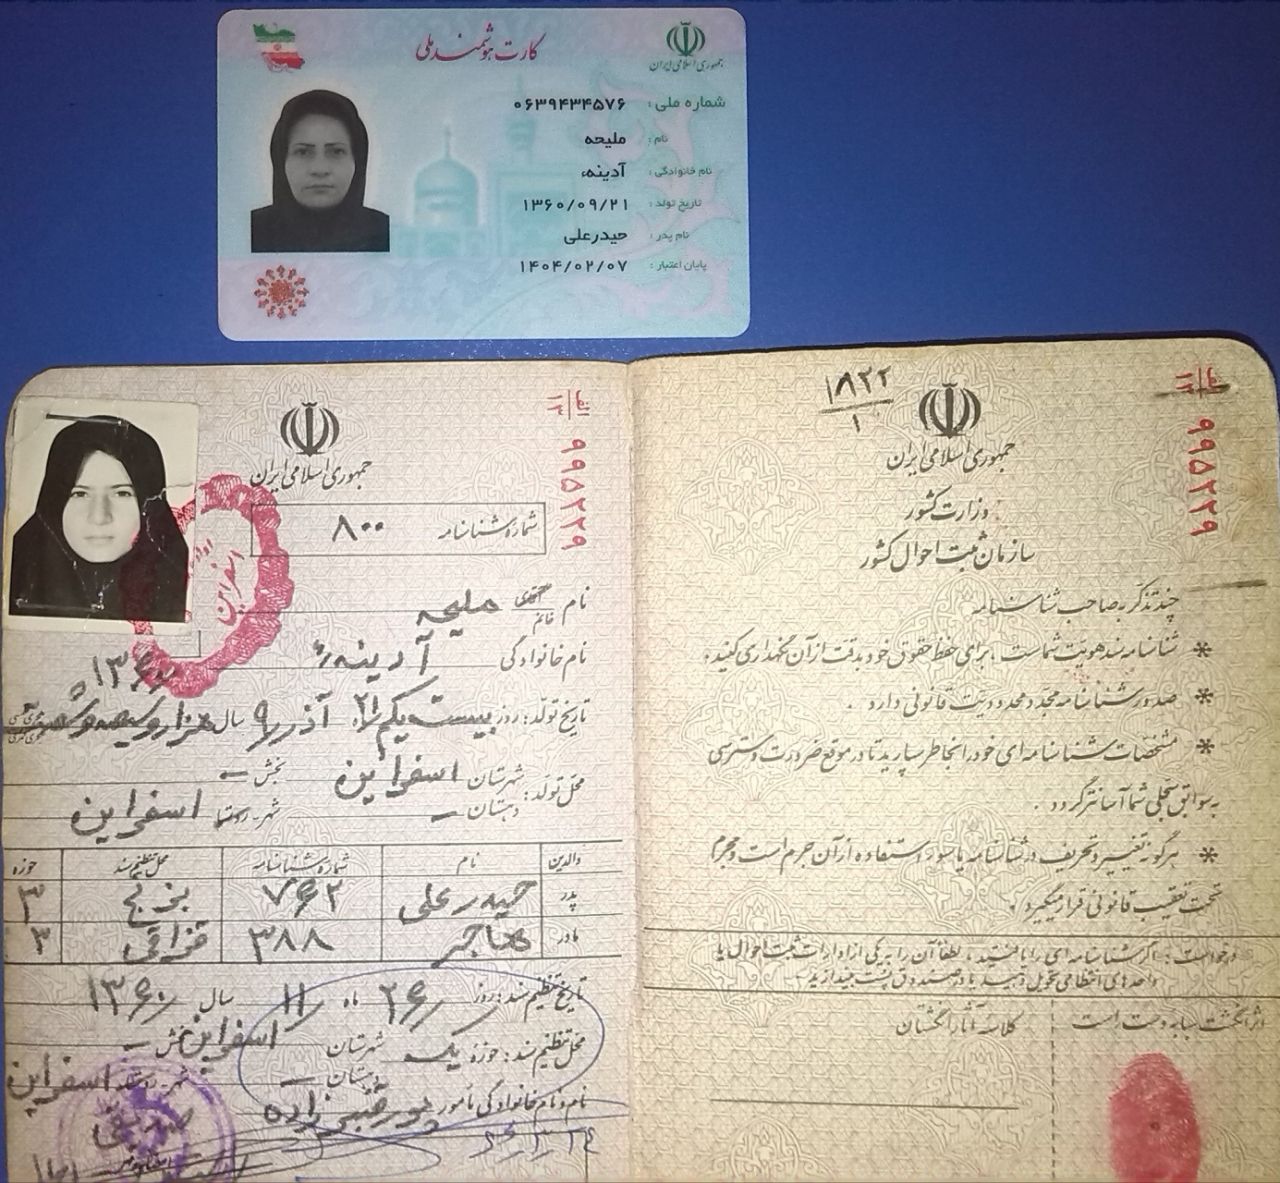 کارت هوشمند ملی
جمهوری اسلامی ایران
شماره ملی : ۰۶۳۹۴۳۴۵۷۶
نام : ملیحه
نام خانوادگی : آدینهء
تاریخ تولد : ۱۳۶۰/۰۹/۲۱
نام پدر : حیدرعلی
پایان اعتبار : ۱۴۰۴/۰۲/۰۷
۱۸۲۲
۱
الف
۱۲
۹۹۵۲۲۹
جمهوری اسلامی ایران
وزارت کشور
سازمان ثبت احوال کشور
چند تذکر به صاحب شناسنامه
* شناسنامه سند هویت شماست ، برای حفظ حقوق خود بدقت از آن نگهداری کنید .
* صدور شناسنامه مجدد محدودیت قانونی دارد .
* مشخصات شناسنامه ای خود را بخاطر بسپارید تا در موقع ضرورت دسترسی
به سوابق سجلی شما آسانتر گردد .
* هرگونه تغییر و تحریف در شناسنامه یا سوء استفاده از آن جرم است و مجرم
تحت تعقیب قانونی قرار میگیرد .
درخواست : اگر شناسنامه ای را یافتید ، لطفاً آن را به یکی از ادارات ثبت احوال یا
واحدهای انتظامی تحویل دهید یا در صندوق پست بیندازید
اثر انگشت سبابه دست است
کلاسه آثار انگشتان
الف
۱۲
۹۹۵۲۲۹
جمهوری اسلامی ایران
شماره شناسنامه ۸۰۰
اسفراین
نام ملیحه
خانم
نام خانوادگی آدینهء
۱۳۶۰
تاریخ تولد : روز بیست یکم ۲۱ ماه آذر ۹ سال هزار و سیصد و شصت
محل تولد : شهرستان اسفراین بخش –
دهستان – شهر - روستا اسفراین
والدین نام شماره شناسنامه محل تنظیم سند حوزه
پدر حیدرعلی ۷۶۲ ۳
مادر هاجر ۳۸۸ ۳
تاریخ تنظیم سند : روز ۲۶ ماه ۱۱ سال ۱۳۶۰
محل تنظیم سند : حوزه یک شهرستان اسفراین بخش –
دهستان – شهر - روستا اسفراین
نام و نام خانوادگی مأمور